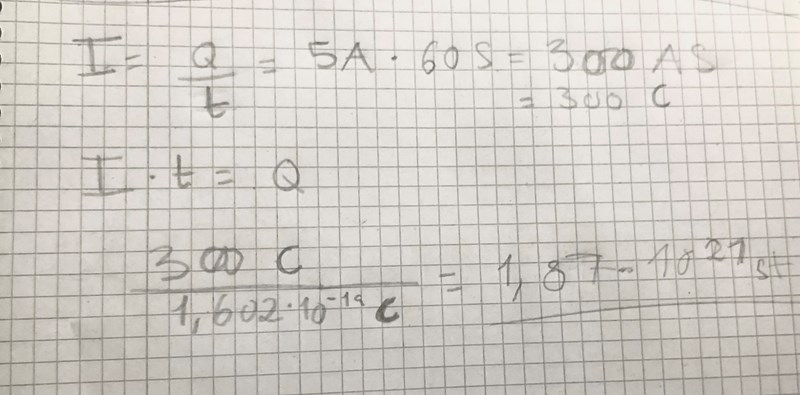 I = Q/t = 5A · 60 S = 300 AS
= 300 C
I · t = Q
300 C / 1,602·10⁻¹⁹ C = 1,87·10²¹ st